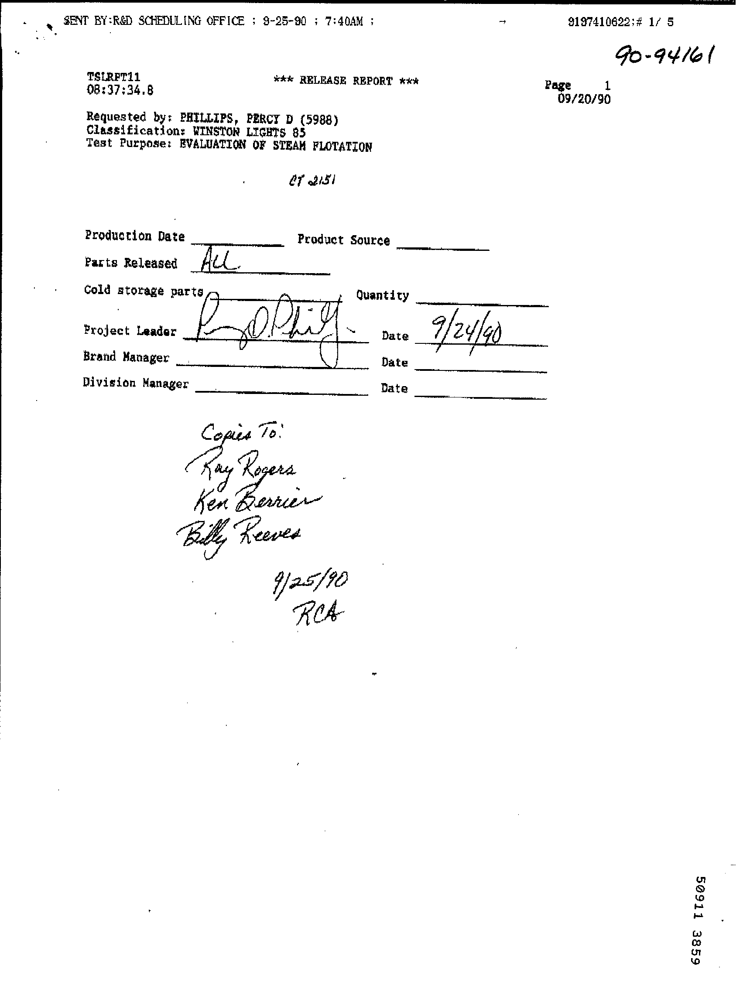 SENT BY:R&D SCHEDULING OFFICE ; 9-25-90 ; 7:40AM ; → 9197410622;# 1/ 5
90-94161
TSLRPT11 *** RELEASE REPORT *** Page 1
08:37:34.8 09/20/90
Requested by: PHILLIPS, PERCY D (5988)
Classification: WINSTON LIGHTS 85
Test Purpose: EVALUATION OF STEAM FLOTATION
CT 2151
Production Date Product Source
Parts Released ALL.
Cold storage parts Quantity
Project Leader P D. Phillips Date 9/24/90
Brand Manager Date
Division Manager Date
Copies To:
Ray Rogers
Ken Berrier
Billy Reeves
9/25/90
RCA
50911 3859